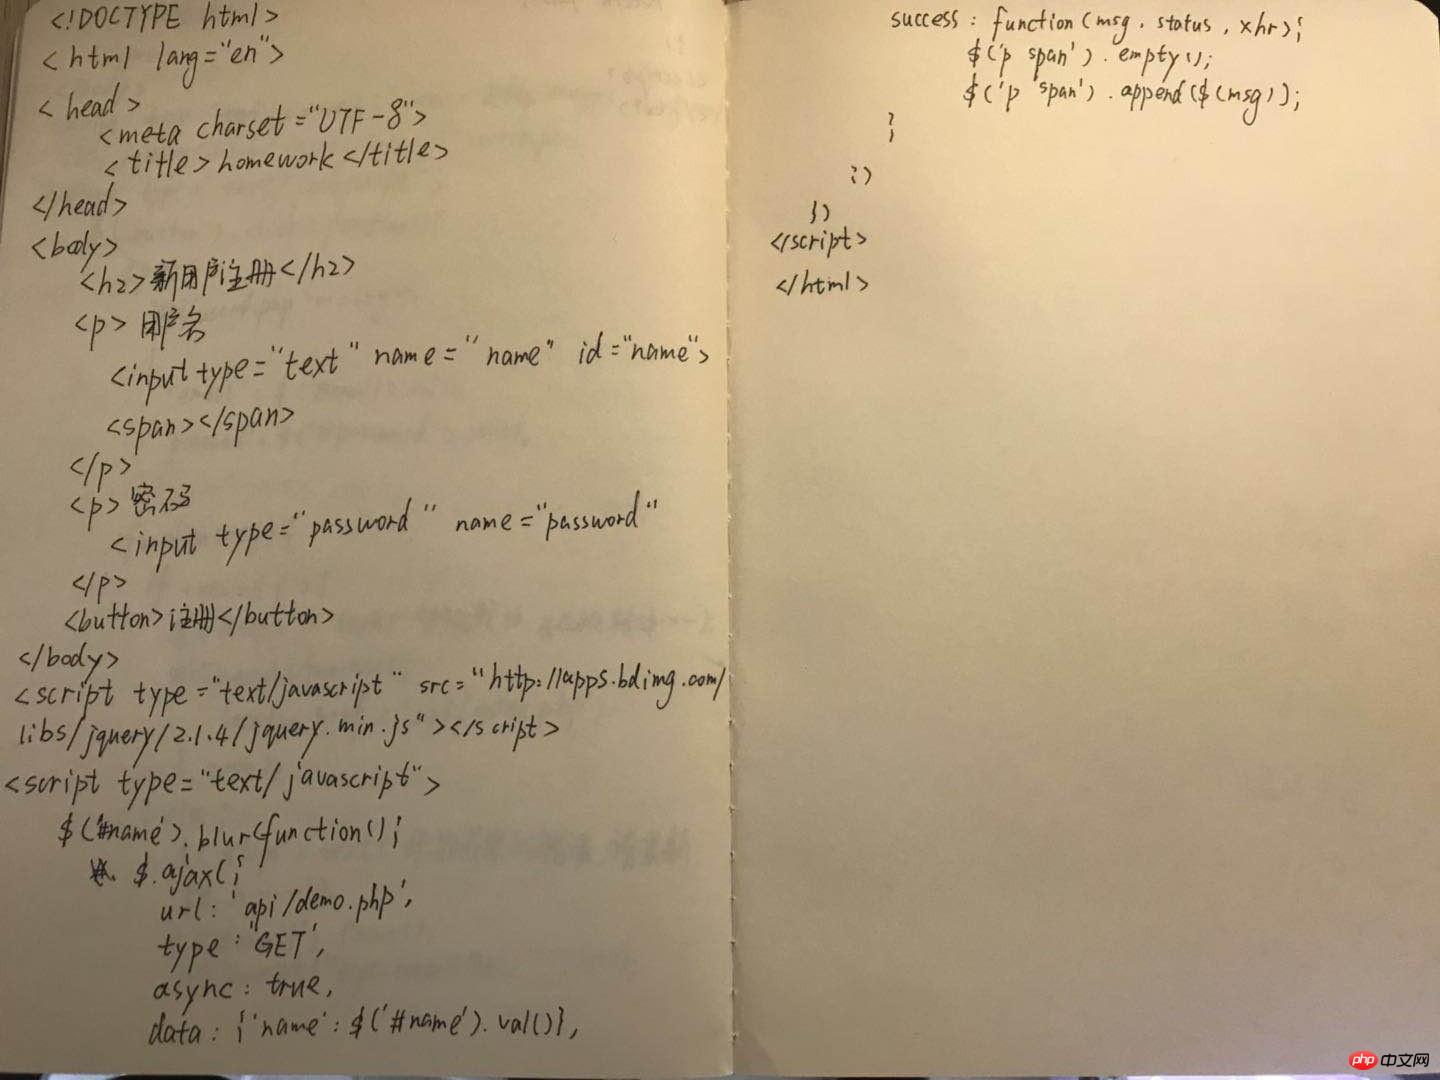 <!DOCTYPE html>
<html lang="en">
<head>
<meta charset="UTF-8">
<title>homework</title>
</head>
<body>
<h2>新用户注册</h2>
<p>用户名
<input type="text" name="name" id="name">
<span></span>
</p>
<p>密码
<input type="password" name="password"
</p>
<button>注册</button>
</body>
<script type="text/javascript" src="http://apps.bdimg.com/
libs/jquery/2.1.4/jquery.min.js"></script>
<script type="text/javascript">
$('#name').blur(function(){
$.ajax({
url:'api/demo.php',
type:'GET',
async:true,
data:{'name':$('#name').val()},
success:function(msg,status,xhr){
$('p span').empty();
$('p span').append($(msg));
}
})
})
</script>
</html>
php 中文网